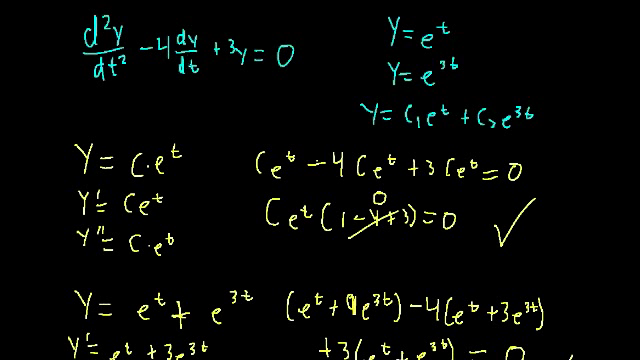 d²y/dt² - 4 dy/dt + 3y = 0
y = e^t
y = e^3t
y = c₁e^t + c₂e^3t
y = C·e^t
y' = Ce^t
y'' = C·e^t
Ce^t - 4Ce^t + 3Ce^t = 0
0
Ce^t (1 - 4 + 3) = 0 ✓
y = e^t + e^3t
y' = e^t + 3e^3t
(e^t + 9e^3t) - 4(e^t + 3e^3t)
+3(e^t + e^3t) = 0